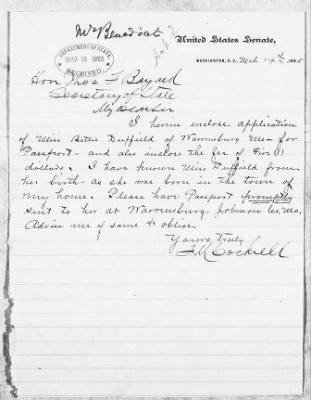 Mr Benedict
United States Senate,
WASHINGTON, D.C., Mch 14th 1885
DEPARTMENT OF STATE
MAR 16 1885
RECEIVED
Hon Thos F Bayard
Secretary of State
My Dear Sir
I herein enclose application
of Miss Duffield of Warrensburg Mo for
Passport - and also inclose the fee of Five
dollars. I have known Miss Duffield from
her birth - as she was born in the town of
my home. Please have Passport promptly
sent to her at Warrensburg. Johnson Co. Mo.
Advise me of same & oblige.
Yours truly
F M Cockrell